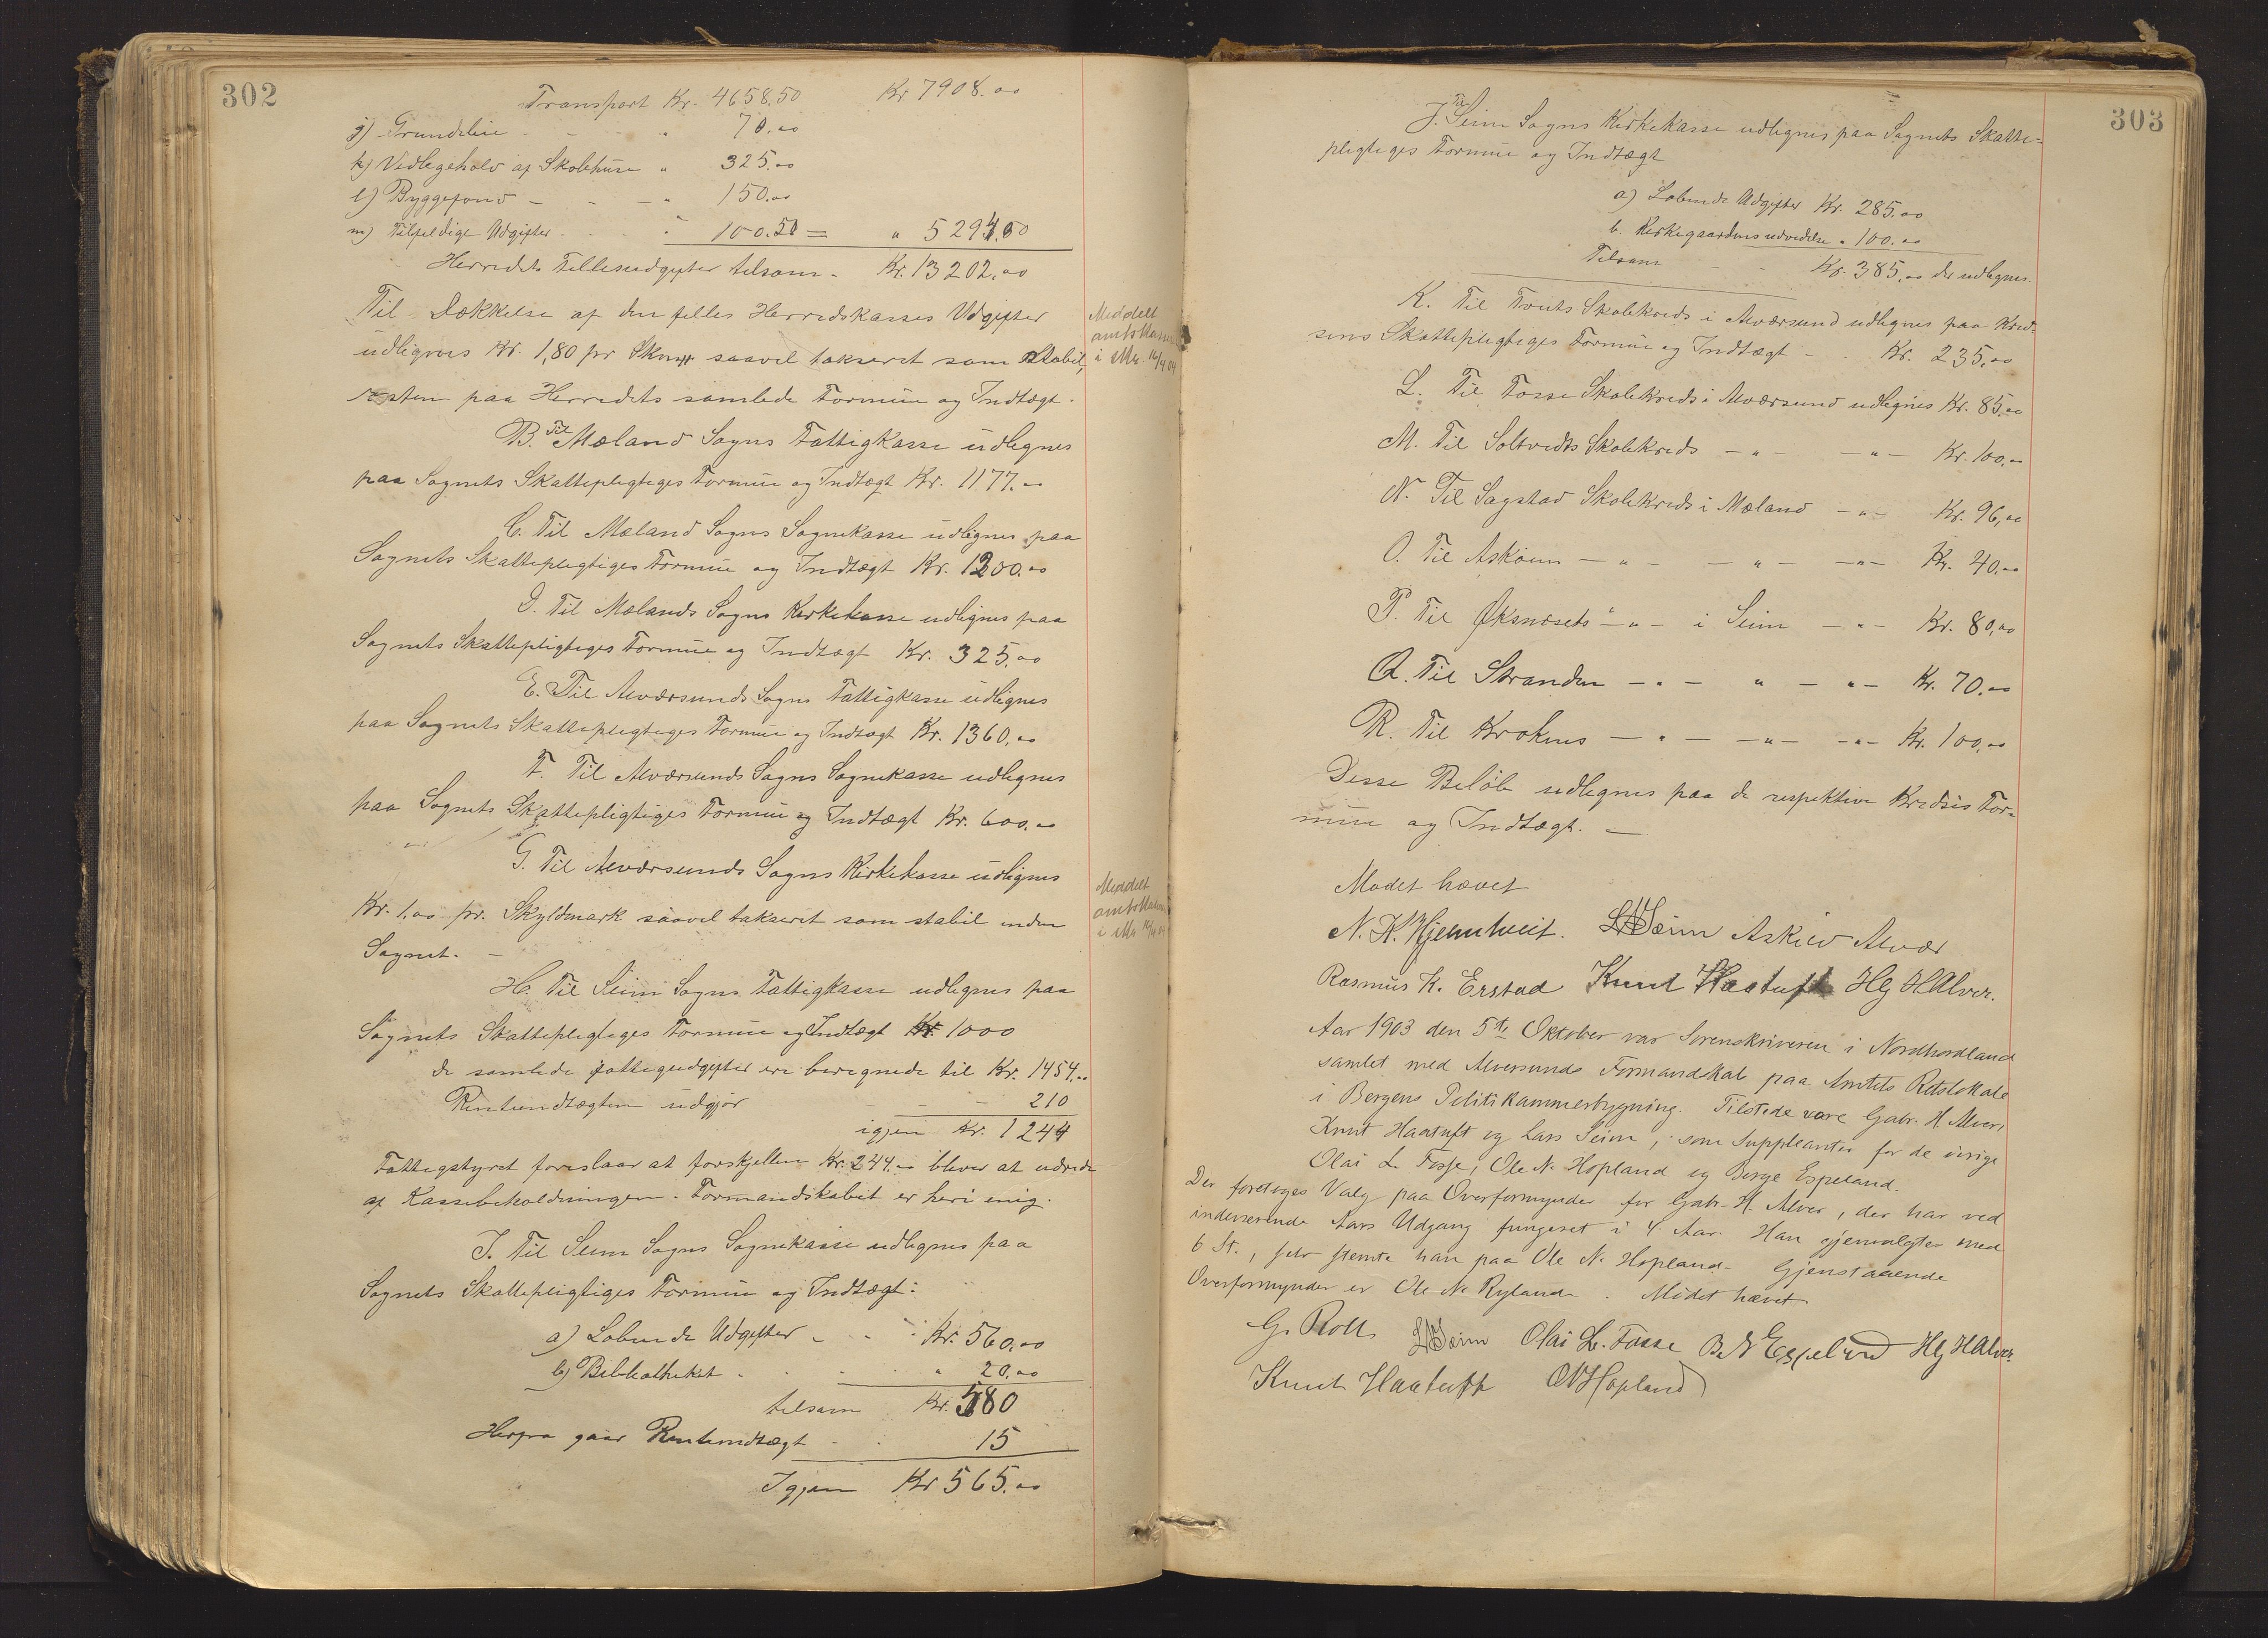 302
Transport Kr. 4658.50 Kr 7908.00
j) Grundleie - - - " 70.00
k) Vedlegehold af Skolehuse " 325.00
l) Byggefond - - - " 150.00
m) Tilfeldige Udgifter - - " 100.50 = " 5294.00
Herredets Fellesudgifter tilsam - Kr. 13202.00
Til Dækkelse af den felles Herredskasses Udgifter
udlignes Kr. 1,80 pr Skmrk saavel takseret som stabil,
resten paa Herredets samlede Formue og Indtægt.
Meddelt
amtskassen
i Mr. 16/4 04
B. Til Mæland Sogns Fattigkasse udlignes
paa Sognets Skattepligtiges Formue og Indtægt Kr. 1177.00
C. Til Mæland Sogns Sognekasse udlignes paa
Sognets Skattepligtiges Formue og Indtægt Kr. 1200.00
D. Til Mælands Sogns Kirkekasse udlignes paa
Sognets Skattepligtiges Formue og Indtægt Kr. 325.00
E. Til Alværsunds Sogns Fattigkasse udlignes
paa Sognets Skattepligtiges Formue og Indtægt Kr. 1360,00
F. Til Alværsunds Sogns Sognekasse udlignes
paa Sognets Skattepligtiges Formue og Indtægt Kr. 600,00
G. Til Alværsunds Sogns Kirkekasse udlignes
Kr. 1,00 pr. Skyldmark saavel takseret som stabil inden
Sognet. -
Meddelt
amtskassen
i Mr 16/4 04
H. Til Seim Sogns Fattigkasse udlignes paa
Sognets Skattepligtiges Formue og Indtægt Kr 1000
de samlede fattigudgifter ere beregnede til Kr. 1454.00
Renteindtægten udgjør - - 210
igjen Kr. 1244
Fattigstyret foreslaar at forskjellen Kr. 244.00 bliver at udrede
af Kassebeholdningen. Formandskabet er heri enig.
I. Til Seim Sogns Sognekasse udlignes paa
Sognets Skattepligtiges Formue og Indtægt:
a) Løbende Udgifter - - - Kr. 560,00
b) Bibliotheket - - - " 20,00
tilsam Kr. 580
Herfra gaar Renteindtægt - - 15
Igjen Kr 565.00
303
J. Til Seim Sogns Kirkekasse udlignes paa Sognets Skatte-
pligtiges Formue og Indtægt
a) Løbende Udgifter Kr. 285.00
b. Kirkegaardens udvidelse " 100.00
Tilsam - - Kr. 385,00 der udlignes.
K. Til Tveits Skolekreds i Alværsund udlignes paa Kred-
sens Skattepligtiges Formue og Indtægt - Kr. 235,00
L. Til Fosse Skolekreds i Alværsund udlignes Kr. 85,00
M. Til Soltvedts Skolekreds - " - - " - Kr. 100,00
N. Til Sagstad Skolekreds i Mæland - " - Kr. 96,00
O. Til Askeim - " - - " - - " - Kr. 40,00
P. Til Øksnæsets - " - i Seim - " - Kr. 80,00
Q. Til Stranden - " - " - " - Kr. 70.00
R. Til Krokens - " - - " - - " - Kr. 100,00
Disse Beløb udlignes paa de respektive Kredses For-
mue og Indtægt. -
Mødet hævet
N. K. Hjelmtveit. LNSeim Askild Alvær
Rasmus K. Erstad Knut Haatuft Hg HAlver.
Aar 1903 den 5te Oktober var Sorenskriveren i Nordhordland
samlet med Alversunds Formandskab paa Amtets Retslokale
i Bergens Politikammerbygning. Tilstede vare Gabr. H. Alver,
Knut Haatuft og Lars Seim, som Suppleanter for de øvrige
Olai L. Fosse, Ole N. Hopland og Børge Espeland.
Der foretoges Valg paa Overformynder for Gabr. H. Alver, der har ved
indeværende Aars Udgang fungeret i 4 Aar. Han gjenvalgtes med
6 St., selv stemte han paa Ole N. Hopland. Gjenstaaende
Overformynder er Ole N. Ryland. Mødet hævet
G. Roll LNSeim Olai L. Fosse B. N Espeland Hg HAlver.
Knut Haatuft ONHopland